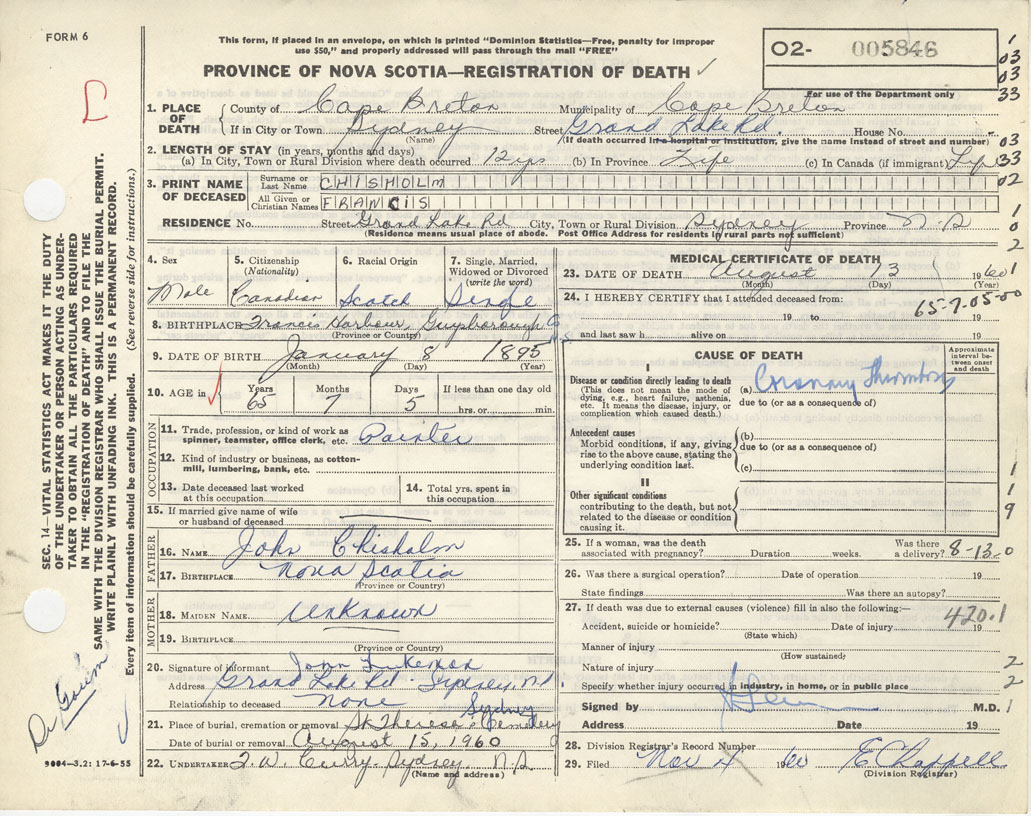 FORM 6
This form, if placed in an envelope, on which is printed "Dominion Statistics—Free, penalty for improper
use $50," and properly addressed will pass through the mail "FREE"
PROVINCE OF NOVA SCOTIA—REGISTRATION OF DEATH ✓
O2- 005846
For use of the Department only
1
03
03
33
1. PLACE OF DEATH
County of Cape Breton Municipality of Cape Breton
If in City or Town Sydney Street Grand Lake Rd. House No.
(Name) (If death occurred in a hospital or institution, give the name instead of street and number)
03
2. LENGTH OF STAY (in years, months and days)
(a) In City, Town or Rural Division where death occurred 12 yrs (b) In Province Life (c) In Canada (if immigrant) Life
33
3. PRINT NAME OF DECEASED
Surname or Last Name CHISHOLM
02
All Given or Christian Names FRANCIS
1
RESIDENCE No. Street Grand Lake Rd City, Town or Rural Division Sydney Province N.S
0
(Residence means usual place of abode. Post Office Address for residents in rural parts not sufficient)
2
4. Sex
Male
5. Citizenship
(Nationality)
Canadian
6. Racial Origin
Scotch
7. Single, Married,
Widowed or Divorced
(write the word)
Single
8. BIRTHPLACE Francis Harbour, Guysborough Co N.S
(Province or Country)
9. DATE OF BIRTH January 8 1895
(Month) (Day) (Year)
10. AGE in
Years Months Days If less than one day old
65 7 5 hrs. or min.
OCCUPATION
11. Trade, profession, or kind of work as
spinner, teamster, office clerk, etc. Painter
12. Kind of industry or business, as cotton-
mill, lumbering, bank, etc.
13. Date deceased last worked
at this occupation
14. Total yrs. spent in
this occupation
15. If married give name of wife
or husband of deceased
FATHER
16. NAME John Chisholm
17. BIRTHPLACE Nova Scotia
(Province or Country)
MOTHER
18. MAIDEN NAME Unknown
19. BIRTHPLACE
(Province or Country)
20. Signature of informant John
Address Grand Lake Rd - Sydney, N.S.
Relationship to deceased None
Sydney
21. Place of burial, cremation or removal St. Therese's Cemetery
Date of burial or removal August 15, 1960
22. UNDERTAKER T. W. Curry. Sydney N.S
(Name and address)
MEDICAL CERTIFICATE OF DEATH
23. DATE OF DEATH August 13 1960
(Month) (Day) (Year)
1
24. I HEREBY CERTIFY that I attended deceased from:
65-7.05-00
19 to 19
and last saw h alive on 19
CAUSE OF DEATH
Approximate
interval be-
tween onset
and death
I
Disease or condition directly leading to death
(This does not mean the mode of
dying, e.g., heart failure, asthenia,
etc. It means the disease, injury, or
complication which caused death.)
(a) Coronary Thrombosis
due to (or as a consequence of)
Antecedent causes
Morbid conditions, if any, giving
rise to the above cause, stating the
underlying condition last.
(b)
due to (or as a consequence of)
(c)
1
II
Other significant conditions
contributing to the death, but not
related to the disease or condition
causing it.
1
9
25. If a woman, was the death
associated with pregnancy? Duration weeks. Was there
a delivery? 8-13-0
26. Was there a surgical operation? Date of operation 19
State findings Was there an autopsy?
27. If death was due to external causes (violence) fill in also the following:—
420.1
Accident, suicide or homicide? Date of injury 19
(State which)
Manner of injury
(How sustained)
Nature of injury
2
Specify whether injury occurred in industry, in home, or in public place
2
Signed by M.D.
1
Address Date 19
28. Division Registrar's Record Number
29. Filed Nov 4 1960 E Chappell
(Division Registrar)
SEC. 14—VITAL STATISTICS ACT MAKES IT THE DUTY
OF THE UNDERTAKER OR PERSON ACTING AS UNDER-
TAKER TO OBTAIN ALL THE PARTICULARS REQUIRED
IN THE "REGISTRATION OF DEATH" AND TO FILE THE
SAME WITH THE DIVISION REGISTRAR WHO SHALL ISSUE THE BURIAL PERMIT.
WRITE PLAINLY WITH UNFADING INK. THIS IS A PERMANENT RECORD.
Every item of information should be carefully supplied. (See reverse side for instructions.)
Dr
9004—3.2: 17-6-55